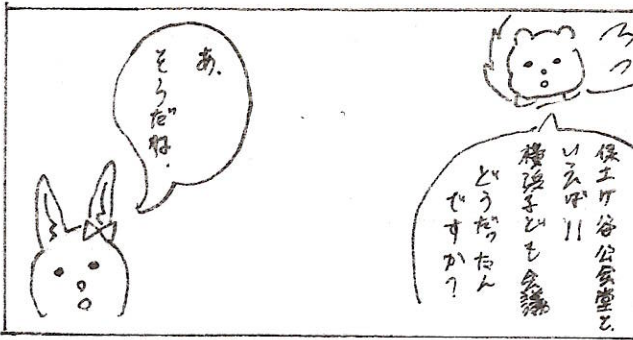 保土ケ谷公会堂と
いえば!!
横浜子ども会議
どうだったん
ですか?
あ、
そうだね。